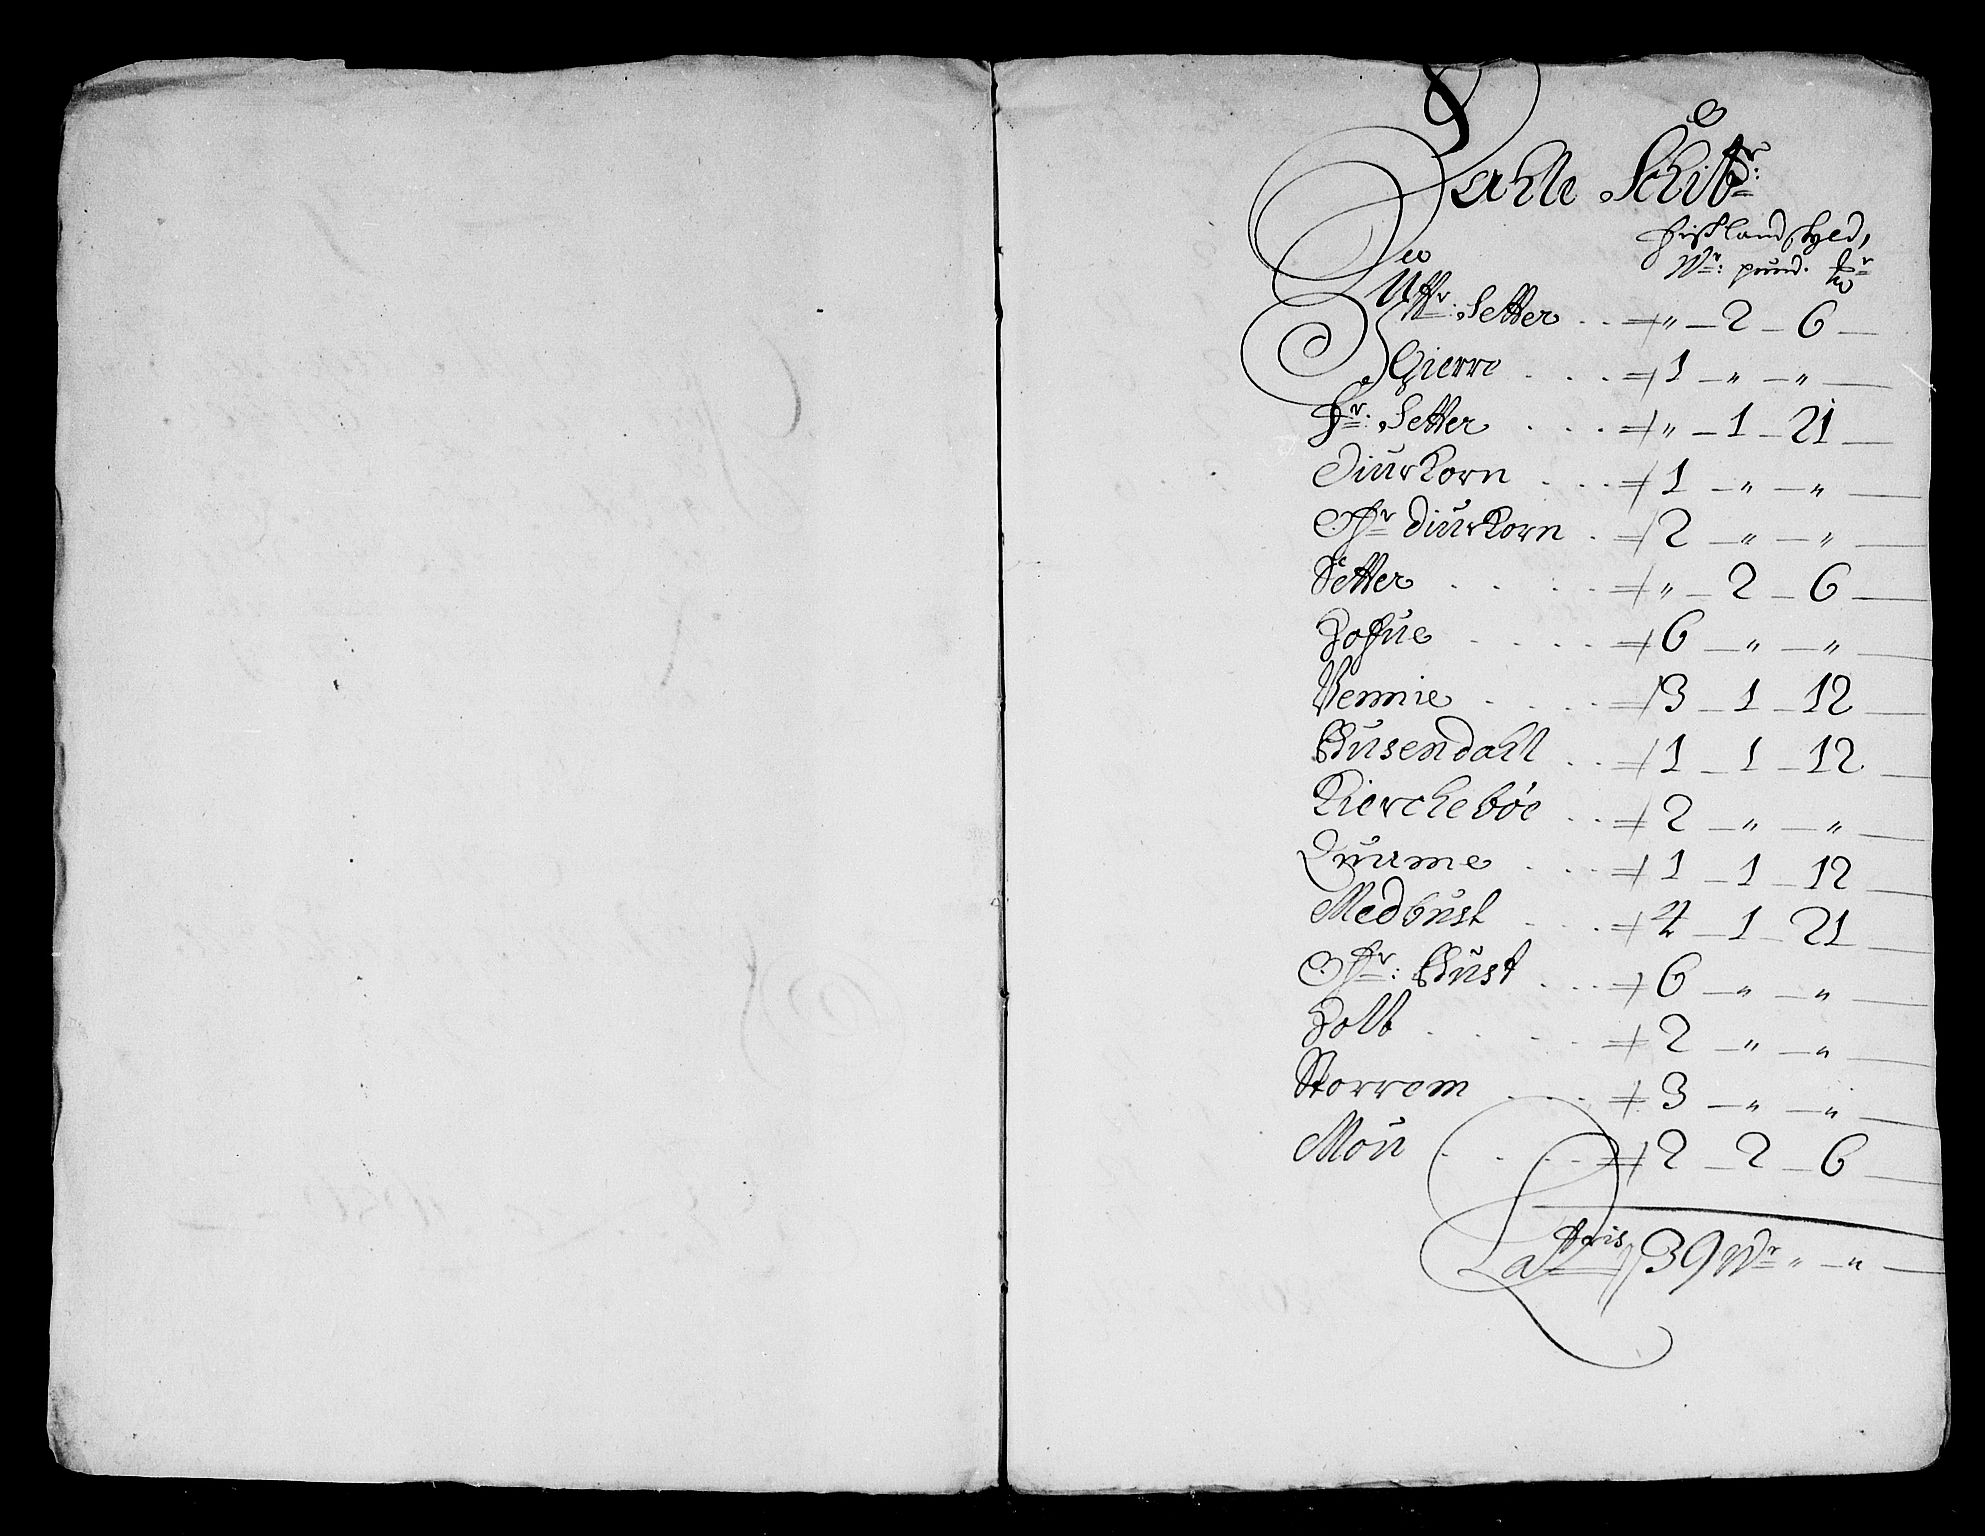 Jerlle Schibr:
Fischland Skyld,
Wr: pund. mr
Uffr: Setter . . " — 2 — 6 —
Gierre . . . 1 — " — " —
Fr: Setter . . . " — 1 — 21 —
Diurkorn . . . 1 — " — " —
Offr Diurkorn . 2 — " — " —
Setter . . . . " — 2 — 6 —
Hoffue . . . . 6 — " — " —
Vennie . . . . 3 — 1 — 12 —
Busendahl . . 1 — 1 — 12 —
Kierckebøe . . 2 — " — " —
Quame . . . 1 — 1 — 12 —
Medbust . . . 4 — 1 — 21 —
Offr: Bust . . . 6 — " — " —
Holt . . . . 2 — " — " —
Storrem . . . 3 — " — " —
Mou . . . . 2 — 2 — 6 —
Lateris 39 Wr " — " —